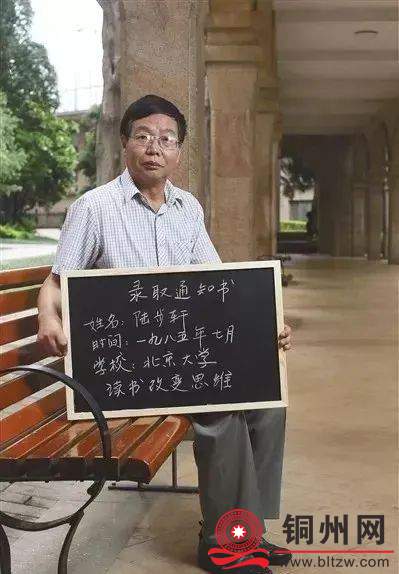 录取通知书
姓名：陆步轩
时间：一九八五年七月
学校：北京大学
读书改变思维
铜州网
www.bltzw.com